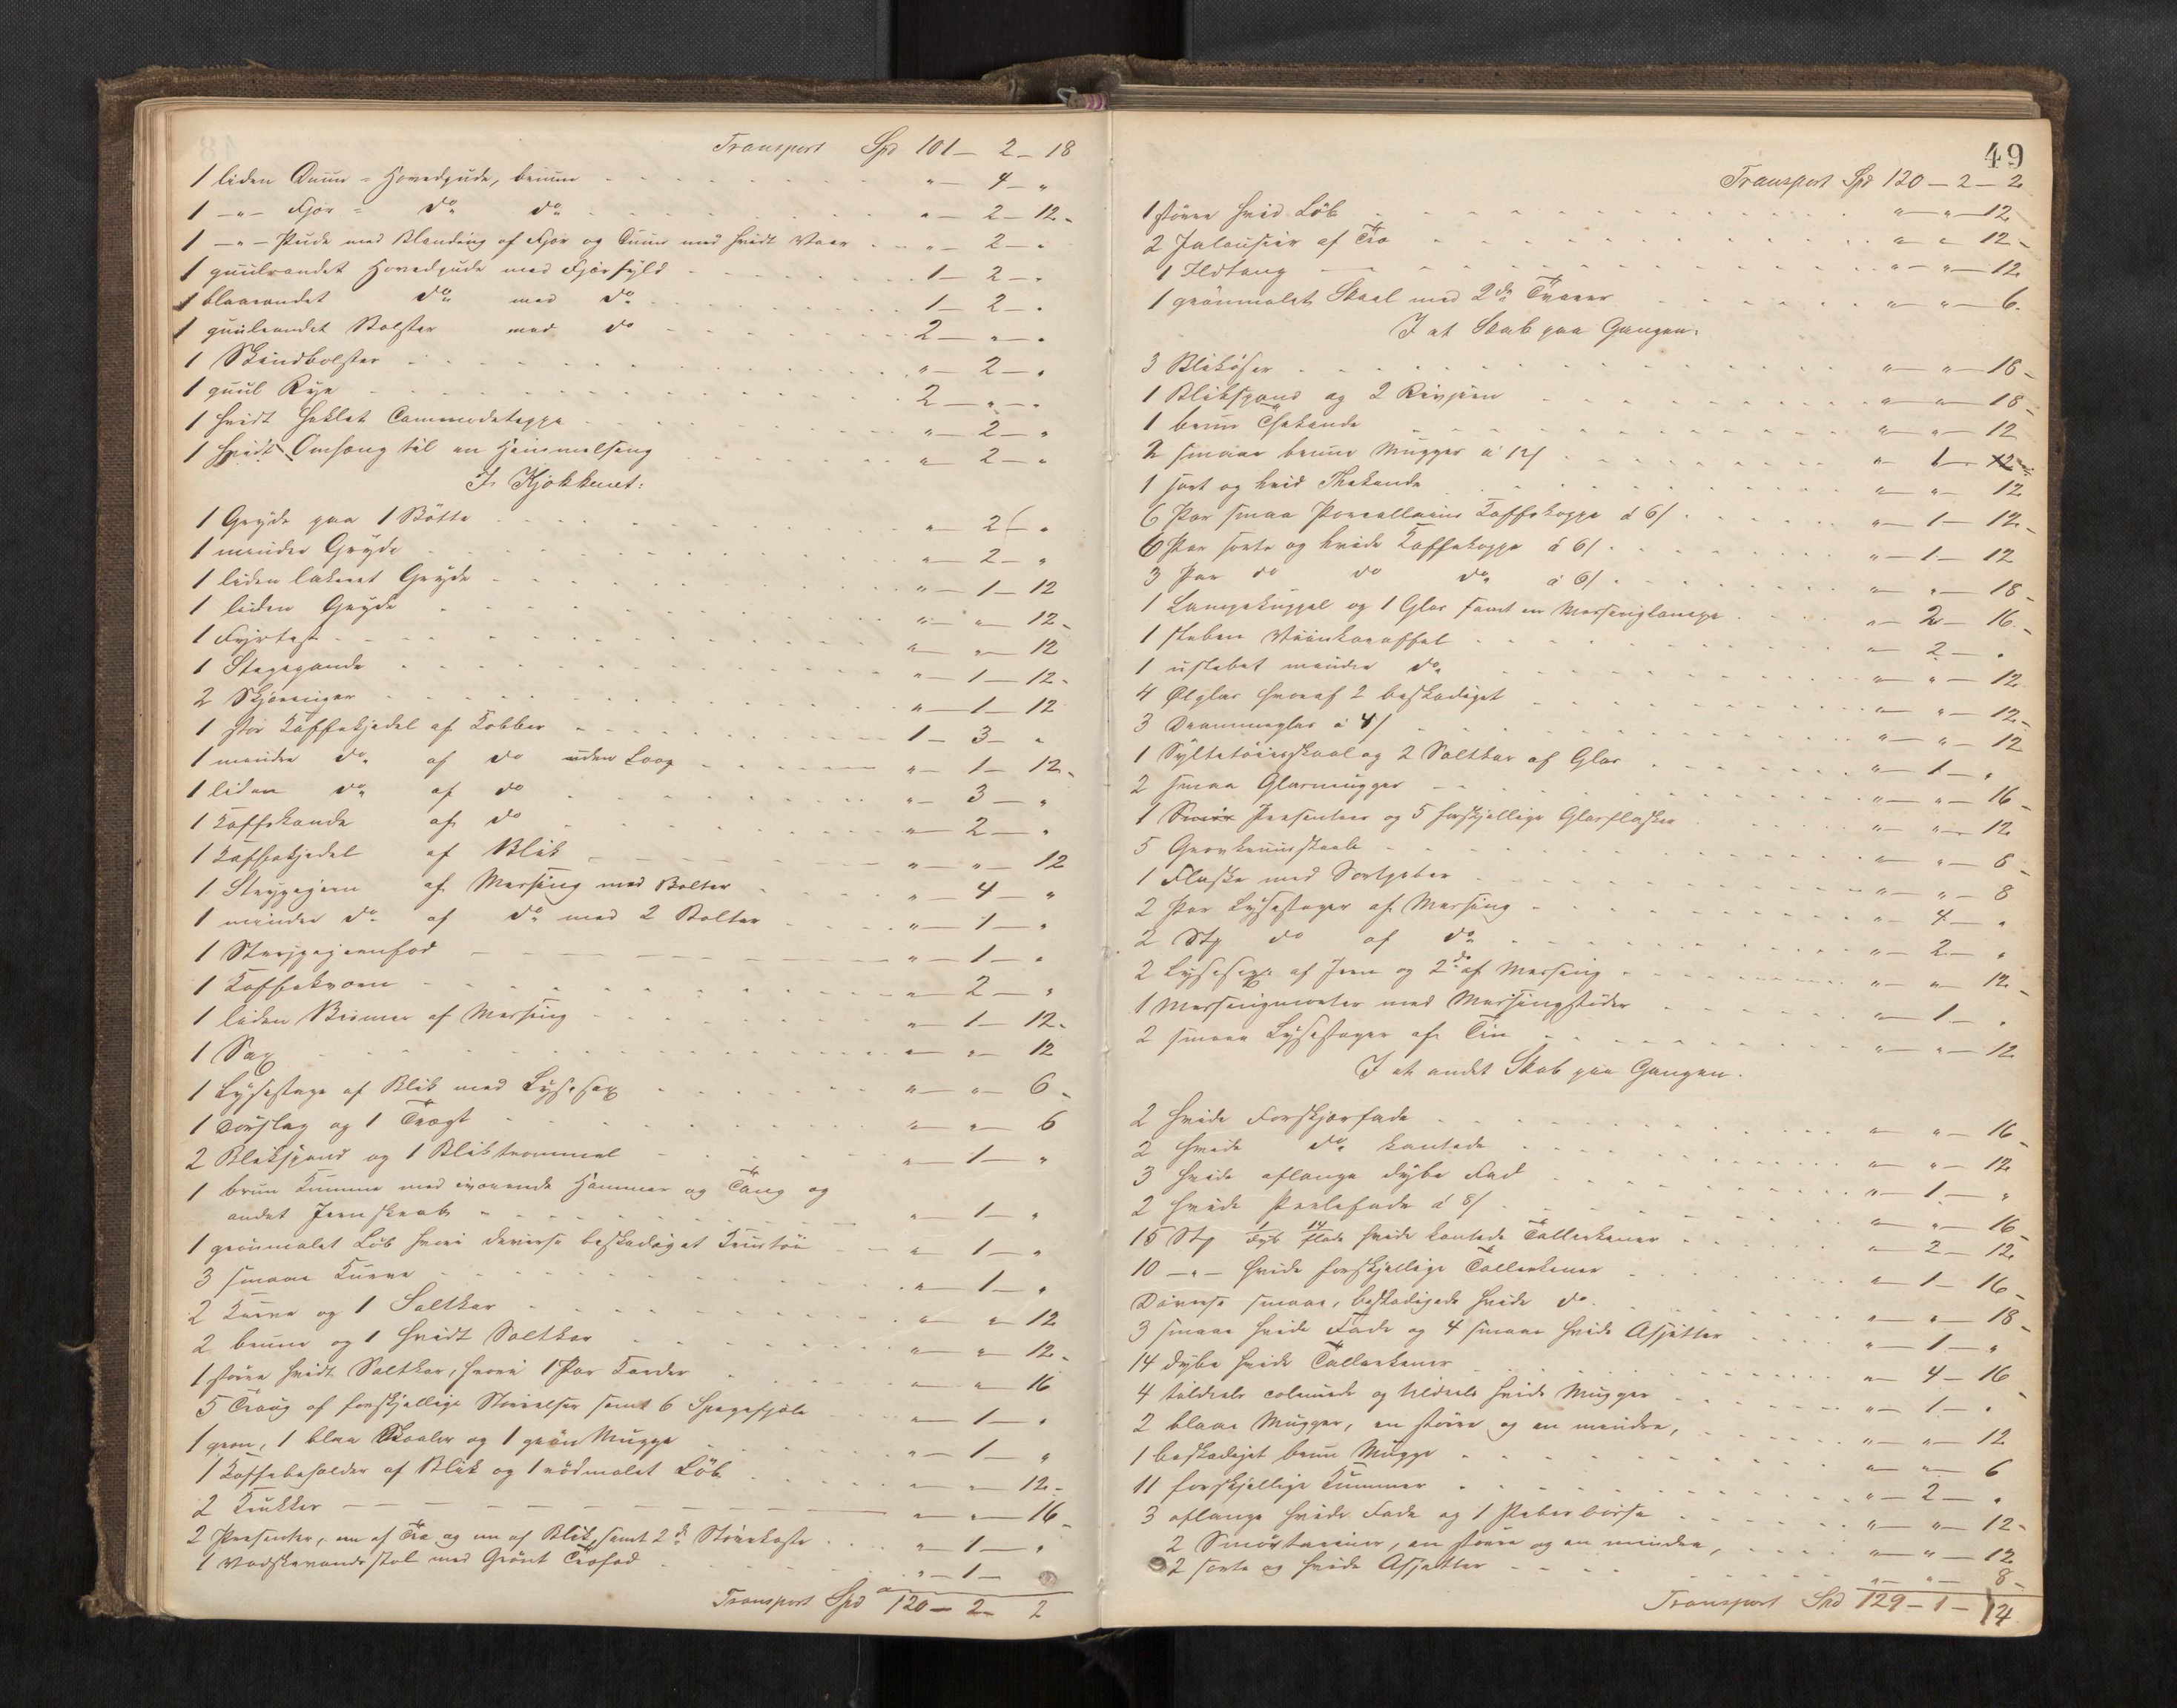 Transport Spd 101 — 2 — 18
1 liden Duun-Hovedpude, bruun " — 4 — "
1 —"— Fjør- do do " — 2 — 12
1 —"— Pude med Blanding af Fjør og Duun med hvidt Vaar " — 2 — "
1 guulrandet Hovedpude med Fjørfyld 1 — 2 — "
1 blaarandet do med do 1 — 2 — "
1 guulrandet Bolster med do 2 — " — "
1 Skindbolster " — 2 — "
1 guul Rye 2 — " — "
1 hvidt heklet Commodeteppe " — 2 — "
1 hvidt Omhæng til en Himmelseng " — 2 — "
I Kjøkkenet:
1 Gryde paa 1 Bøtte " — 2 — "
1 mindre Gryde " — 2 — "
1 liden lakeret Gryde " — 1 — 12
1 liden Gryde " — " — 12
1 Fyrtøi " — " — 12
1 Stegepande " — 1 — 12
2 Skjæringer " — 1 — 12
1 stor Kaffekjedel af Kobber 1 — 3 — "
1 mindre do af do uden Laag " — 1 — 12
1 liden do af do " — 3 — "
1 Kaffekande af do " — 2 — "
1 Kaffekjedel af Blik " — " — 12
1 Strygejern af Messing med Bolter " — 4 — "
1 mindre do af do med 2 Bolter " — 1 — "
1 Strygejernfod " — 1 — "
1 Kaffekværn " — 2 — "
1 liden Bismer af Messing " — 1 — 12
1 Sax " — " — 12
1 Lysestage af Blik med Lysesax " — " — 6
1 Dørslag og 1 Tragt " — " — 6
2 Blikspand og 1 Bliktrommel " — 1 — "
1 bruun Kumme med iværende Hammer og Tang og
andet Jernskrab " — 1 — "
1 grønmalet Løb hvori diverse beskadiget Kruustøi " — 1 — "
3 smaae Kurve " — 1 — "
2 Kurve og 1 Saltkar " — " — 12
2 brune og 1 hvidt Saltkar " — " — 12
1 større hvidt Saltkar, hvori 1 Par Karder " — " — 16
5 Traug af forskjellige Størrelser samt 6 Spegefjøle " — 1 — "
1 grøn, 1 blaa Skaaler og 1 grøn Mugge " — 1 — "
1 Kaffebeholder af Blik og 1 rødmalet Løb " — " — 12
2 Krukker " — " — 16
2 Presenter, en af Træ og en af Blik, samt 2 do Støvekoste " — 1 — "
1 Vadskevandsstol med Grønt Træfad " — 1 — "
Transport Spd 120 — 2 — 2
49
Transport Spd 120 — 2 — 2
1 større hvid Løb " — " — 12
2 Jalousier af Træ " — " — 12
1 Ildtang " — " — 12
1 grønmalet Skaal med 2 do Tvarer " — " — 6
I et Skab paa Gangen:
3 Bliköser " — " — 18
1 Blikspand og 2 Rivjern " — " — 18
1 bruun Thekande " — " — 12
2 smaae brune Mugger á 12/ " — 1 — "
1 sort og hvid Thekande " — " — 12
6 Par smaa Porcellains Kaffekoppe á 6/ " — 1 — 12
6 Par sorte og hvide Kaffekoppe á 6/ " — 1 — 12
3 Par do do do á 6/ " — " — 18
1 Lampekuppel og 1 Glas samt en Messinglampe " — 2 — 16
1 sleben Viinkaraffel " — 2 — "
1 uslebet mindre do " — " — 12
4 Ølglas hvoraf 2 beskadiget " — " — 12
3 Dramme​glas á 4/ " — " — 12
1 Syltetøiesskaal og 2 Saltkar af Glas " — 1 — "
2 smaa Glasmugger " — " — 16
1 Presenteer og 5 forskjellige Glasflasker " — " — 12
5 " — " — 8
1 Flaske med Sortpeber " — " — 8
2 Par Lysestager af Messing " — 4 — "
2 Stk do af do " — 2 — "
2 Lysesaxe af Jern og 2 do af Messing " — " — 12
1 Messingmorter med Messingstøder " — 1 — "
2 smaae Lysestager af Tin " — " — 12
I et andet Skab paa Gangen.
2 hvide Forskjærfade " — " — 16
2 hvide do kantede " — " — 12
3 hvide aflange dybe Fad " — 1 — "
2 hvide Perlefade á 8/ " — " — 16
15 Stk 1 dyb 14 flade hvide kantede Tallerkener " — 2 — 12
10 —"— hvide forskjellige Tallerkener " — 1 — 16
Diverse smaae, beskadigede hvide do " — " — 18
3 smaae hvide Fade og 4 smaae hvide Asjetter " — 1 — "
14 dybe hvide Tallerkener " — 4 — 16
4 tildeels colørede og tildeels hvide Mugger " — 1 — "
2 blaae Mugger, en større og en mindre, " — " — 12
1 beskadiget bruun Mugge " — " — 6
11 forskjellige Kummer " — 2 — "
3 aflange hvide Fade og 1 Peberbøsse " — " — 12
2 Smørteriner, en større og en mindre, " — " — 12
2 sorte og hvide Asjetter " — " — 8
Transport Spd 129 — 1 — 14